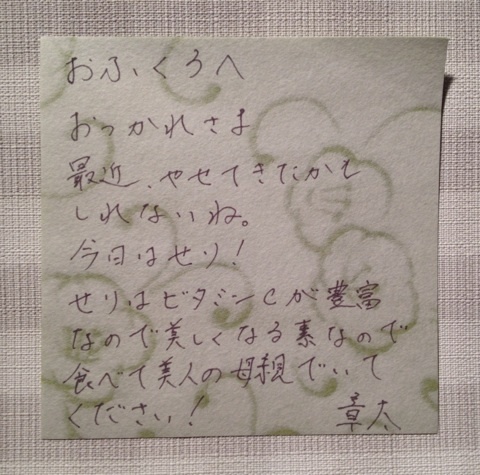 おふくろへ
おつかれさま
最近、やせてきたかも
しれないね。
今日はせり!
せりはビタミンCが豊富
なので美しくなる素なので
食べて美人の母親でいて
ください!
章太